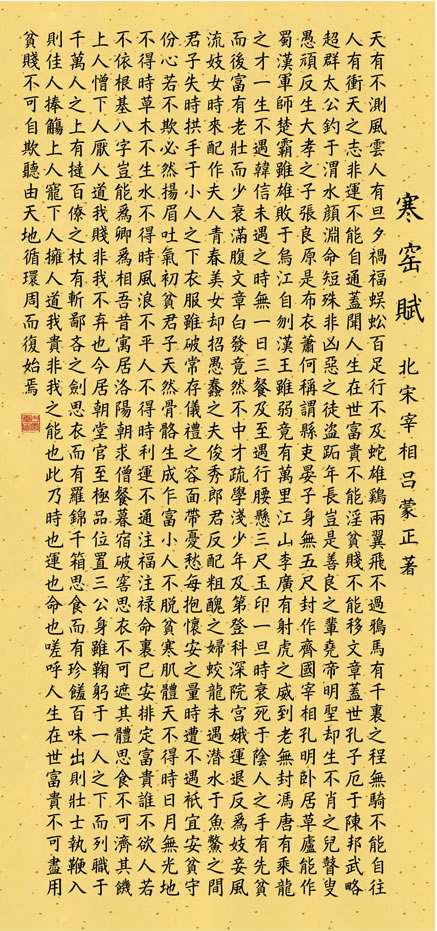 寒窑賦
北宋宰相吕蒙正著
天有不測風雲人有旦夕禍福蜈蚣百足行不及蛇雄鷄兩翼飛不過鴉馬有千裏之程無騎不能自往
人有衝天之志非運不能自通蓋聞人生在世富貴不能淫貧賤不能移文章蓋世孔子厄于陳邦武略
超群太公釣于渭水顔淵命短殊非凶惡之徒盜跖年長豈是善良之輩堯帝明聖却生不肖之兒瞽叟
愚頑反生大孝之子張良原是布衣蕭何稱謂縣吏晏子身無五尺封作齊國宰相孔明卧居草廬能作
蜀漢軍師楚霸雖雄敗于烏江自刎漢王雖弱竟有萬里江山李廣有射虎之威到老無封馮唐有乘龍
之才一生不遇韓信未遇之時無一日三餐及至遇行腰懸三尺玉印一旦時衰死于陰人之手有先貧
而後富有老壯而少衰滿腹文章白發竟然不中才疏學淺少年及第登科深院宮娥運退反爲妓妾風
流妓女時來配作夫人青春美女却招愚蠢之夫俊秀郎君反配粗醜之婦蛟龍未遇潛水于魚鱉之間
君子失時拱手于小人之下衣服雖破常存儀禮之容面帶憂愁每抱懷安之量時遭不遇衹宜安貧守
份心若不欺必然揚眉吐氣初貧君子天然骨骼生成乍富小人不脱貧寒肌體天不得時日月無光地
不得時草木不生水不得時風浪不平人不得時利運不通注福注禄命裏已安排定富貴誰不欲人若
不依根基八字豈能爲卿爲相吾昔寓居洛陽朝求僧餐暮宿破窖思衣不可遮其體思食不可濟其饑
上人憎下人厭人道我賤非我不弃也今居朝堂官至極品位置三公身雖鞠躬于一人之下而列職于
千萬人之上有撻百僚之杖有斬鄙吝之劍思衣而有羅錦千箱思食而有珍饈百味出則壯士執鞭入
則佳人捧觴上人寵下人擁人道我貴非我之能也此乃時也運也命也嗟呼人生在世富貴不可盡用
貧賤不可自欺聽由天地循環周而復始焉